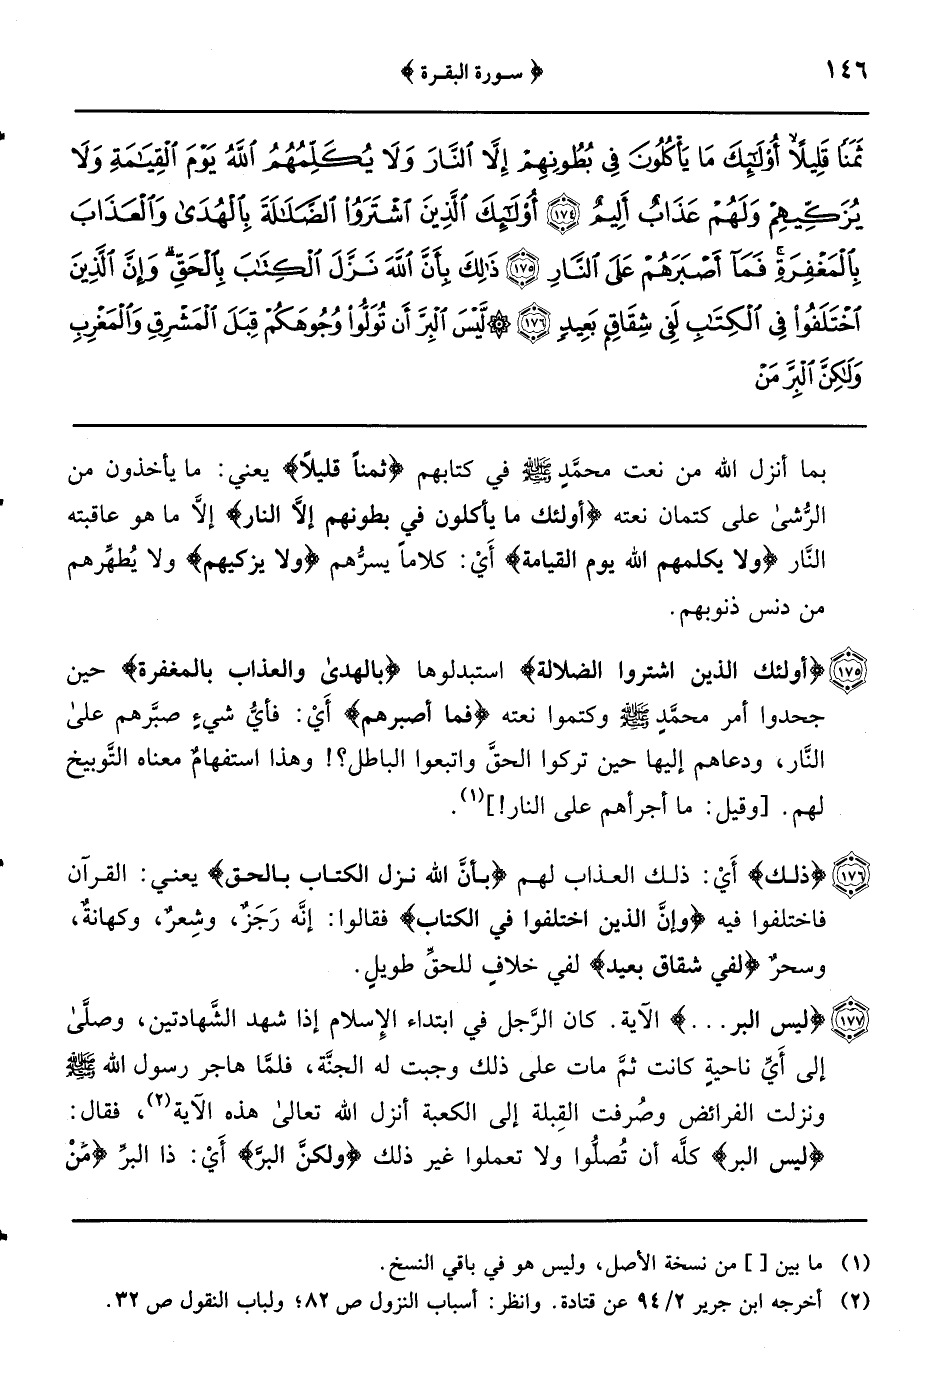 ١٤٦
﴿ سورة البقرة ﴾
ثَمَنًا قَلِيلًاۙ أُوْلَٰٓئِكَ مَا يَأْكُلُونَ فِي بُطُونِهِمْ إِلَّا ٱلنَّارَ وَلَا يُكَلِّمُهُمُ ٱللَّهُ يَوْمَ ٱلْقِيَٰمَةِ وَلَا
يُزَكِّيهِمْ وَلَهُمْ عَذَابٌ أَلِيمٌ ١٧٤ أُوْلَٰٓئِكَ ٱلَّذِينَ ٱشْتَرَوُاْ ٱلضَّلَٰلَةَ بِٱلْهُدَىٰ وَٱلْعَذَابَ
بِٱلْمَغْفِرَةِۚ فَمَآ أَصْبَرَهُمْ عَلَى ٱلنَّارِ ١٧٥ ذَٰلِكَ بِأَنَّ ٱللَّهَ نَزَّلَ ٱلْكِتَٰبَ بِٱلْحَقِّۗ وَإِنَّ ٱلَّذِينَ
ٱخْتَلَفُواْ فِي ٱلْكِتَٰبِ لَفِي شِقَاقٍۭ بَعِيدٍ ١٧٦ ۞لَّيْسَ ٱلْبِرَّ أَن تُوَلُّواْ وُجُوهَكُمْ قِبَلَ ٱلْمَشْرِقِ وَٱلْمَغْرِبِ
وَلَٰكِنَّ ٱلْبِرَّ مَنْ
بما أنزل الله من نعت محمَّدٍ ﷺ في كتابهم ﴿ثمناً قليلاً﴾ يعني: ما يأخذون من
الرُّشىٰ على كتمان نعته ﴿أولئك ما يأكلون في بطونهم إلاَّ النار﴾ إلاَّ ما هو عاقبته
النَّار ﴿ولا يكلمهم الله يوم القيامة﴾ أَيْ: كلاماً يسرُّهم ﴿ولا يزكيهم﴾ ولا يُطهِّرهم
من دنس ذنوبهم.
١٧٥ ﴿أولئك الذين اشتروا الضلالة﴾ استبدلوها ﴿بالهدىٰ والعذاب بالمغفرة﴾ حين
جحدوا أمر محمَّدٍ ﷺ وكتموا نعته ﴿فما أصبرهم﴾ أَيْ: فأيُّ شيءٍ صبَّرهم علىٰ
النَّار، ودعاهم إليها حين تركوا الحقَّ واتبعوا الباطل؟! وهذا استفهامٌ معناه التَّوبيخ
لهم. [وقيل: ما أجرأهم على النار!](١).
١٧٦ ﴿ذلك﴾ أَيْ: ذلك العذاب لهم ﴿بأنَّ الله نزل الكتاب بالحق﴾ يعني: القرآن
فاختلفوا فيه ﴿وإنَّ الذين اختلفوا في الكتاب﴾ فقالوا: إنَّه رَجَزٌ، وشِعرٌ، وكهانةٌ،
وسحرٌ ﴿لفي شقاق بعيد﴾ لفي خلافٍ للحقِّ طويلٍ.
١٧٧ ﴿ليس البر...﴾ الآية. كان الرَّجل في ابتداء الإسلام إذا شهد الشَّهادتين، وصلَّىٰ
إلى أَيِّ ناحيةٍ كانت ثمَّ مات على ذلك وجبت له الجنَّة، فلمَّا هاجر رسول الله ﷺ
ونزلت الفرائض وصُرفت القِبلة إلى الكعبة أنزل الله تعالىٰ هذه الآية(٢)، فقال:
﴿ليس البر﴾ كلَّه أن تُصلُّوا ولا تعملوا غير ذلك ﴿ولكنَّ البرَّ﴾ أَيْ: ذا البرِّ ﴿مَنْ
(١) ما بين [ ] من نسخة الأصل، وليس هو في باقي النسخ.
(٢) أخرجه ابن جرير ٩٤/٢ عن قتادة. وانظر: أسباب النزول ص ٨٢؛ ولباب النقول ص ٣٢.